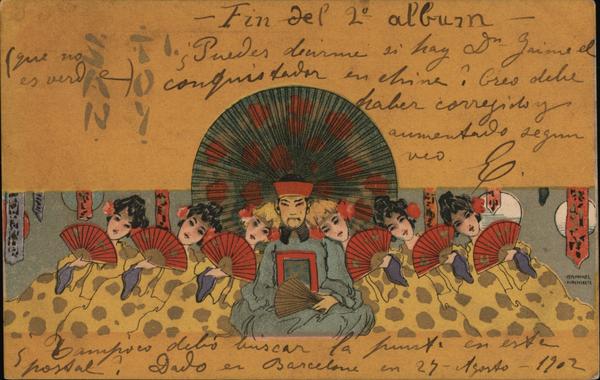 — Fin del 2º album —
(que no es verde)
¿Puedes decirme si hay Dn Jaime el
conquistador en china? Creo debe
haber corregido y
aumentado segun
veo.
RAPHAEL
KIRCHNER
¿Tampoco debó buscar la punta en este
postal? Dado en Barcelona en 27-Agosto-1902